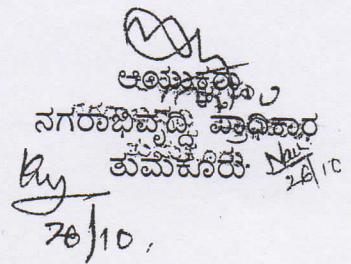 ಆಯುಕ್ತರು
ನಗರಾಭಿವೃದ್ಧಿ ಪ್ರಾಧಿಕಾರ
ತುಮಕೂರು
26/10
26/10